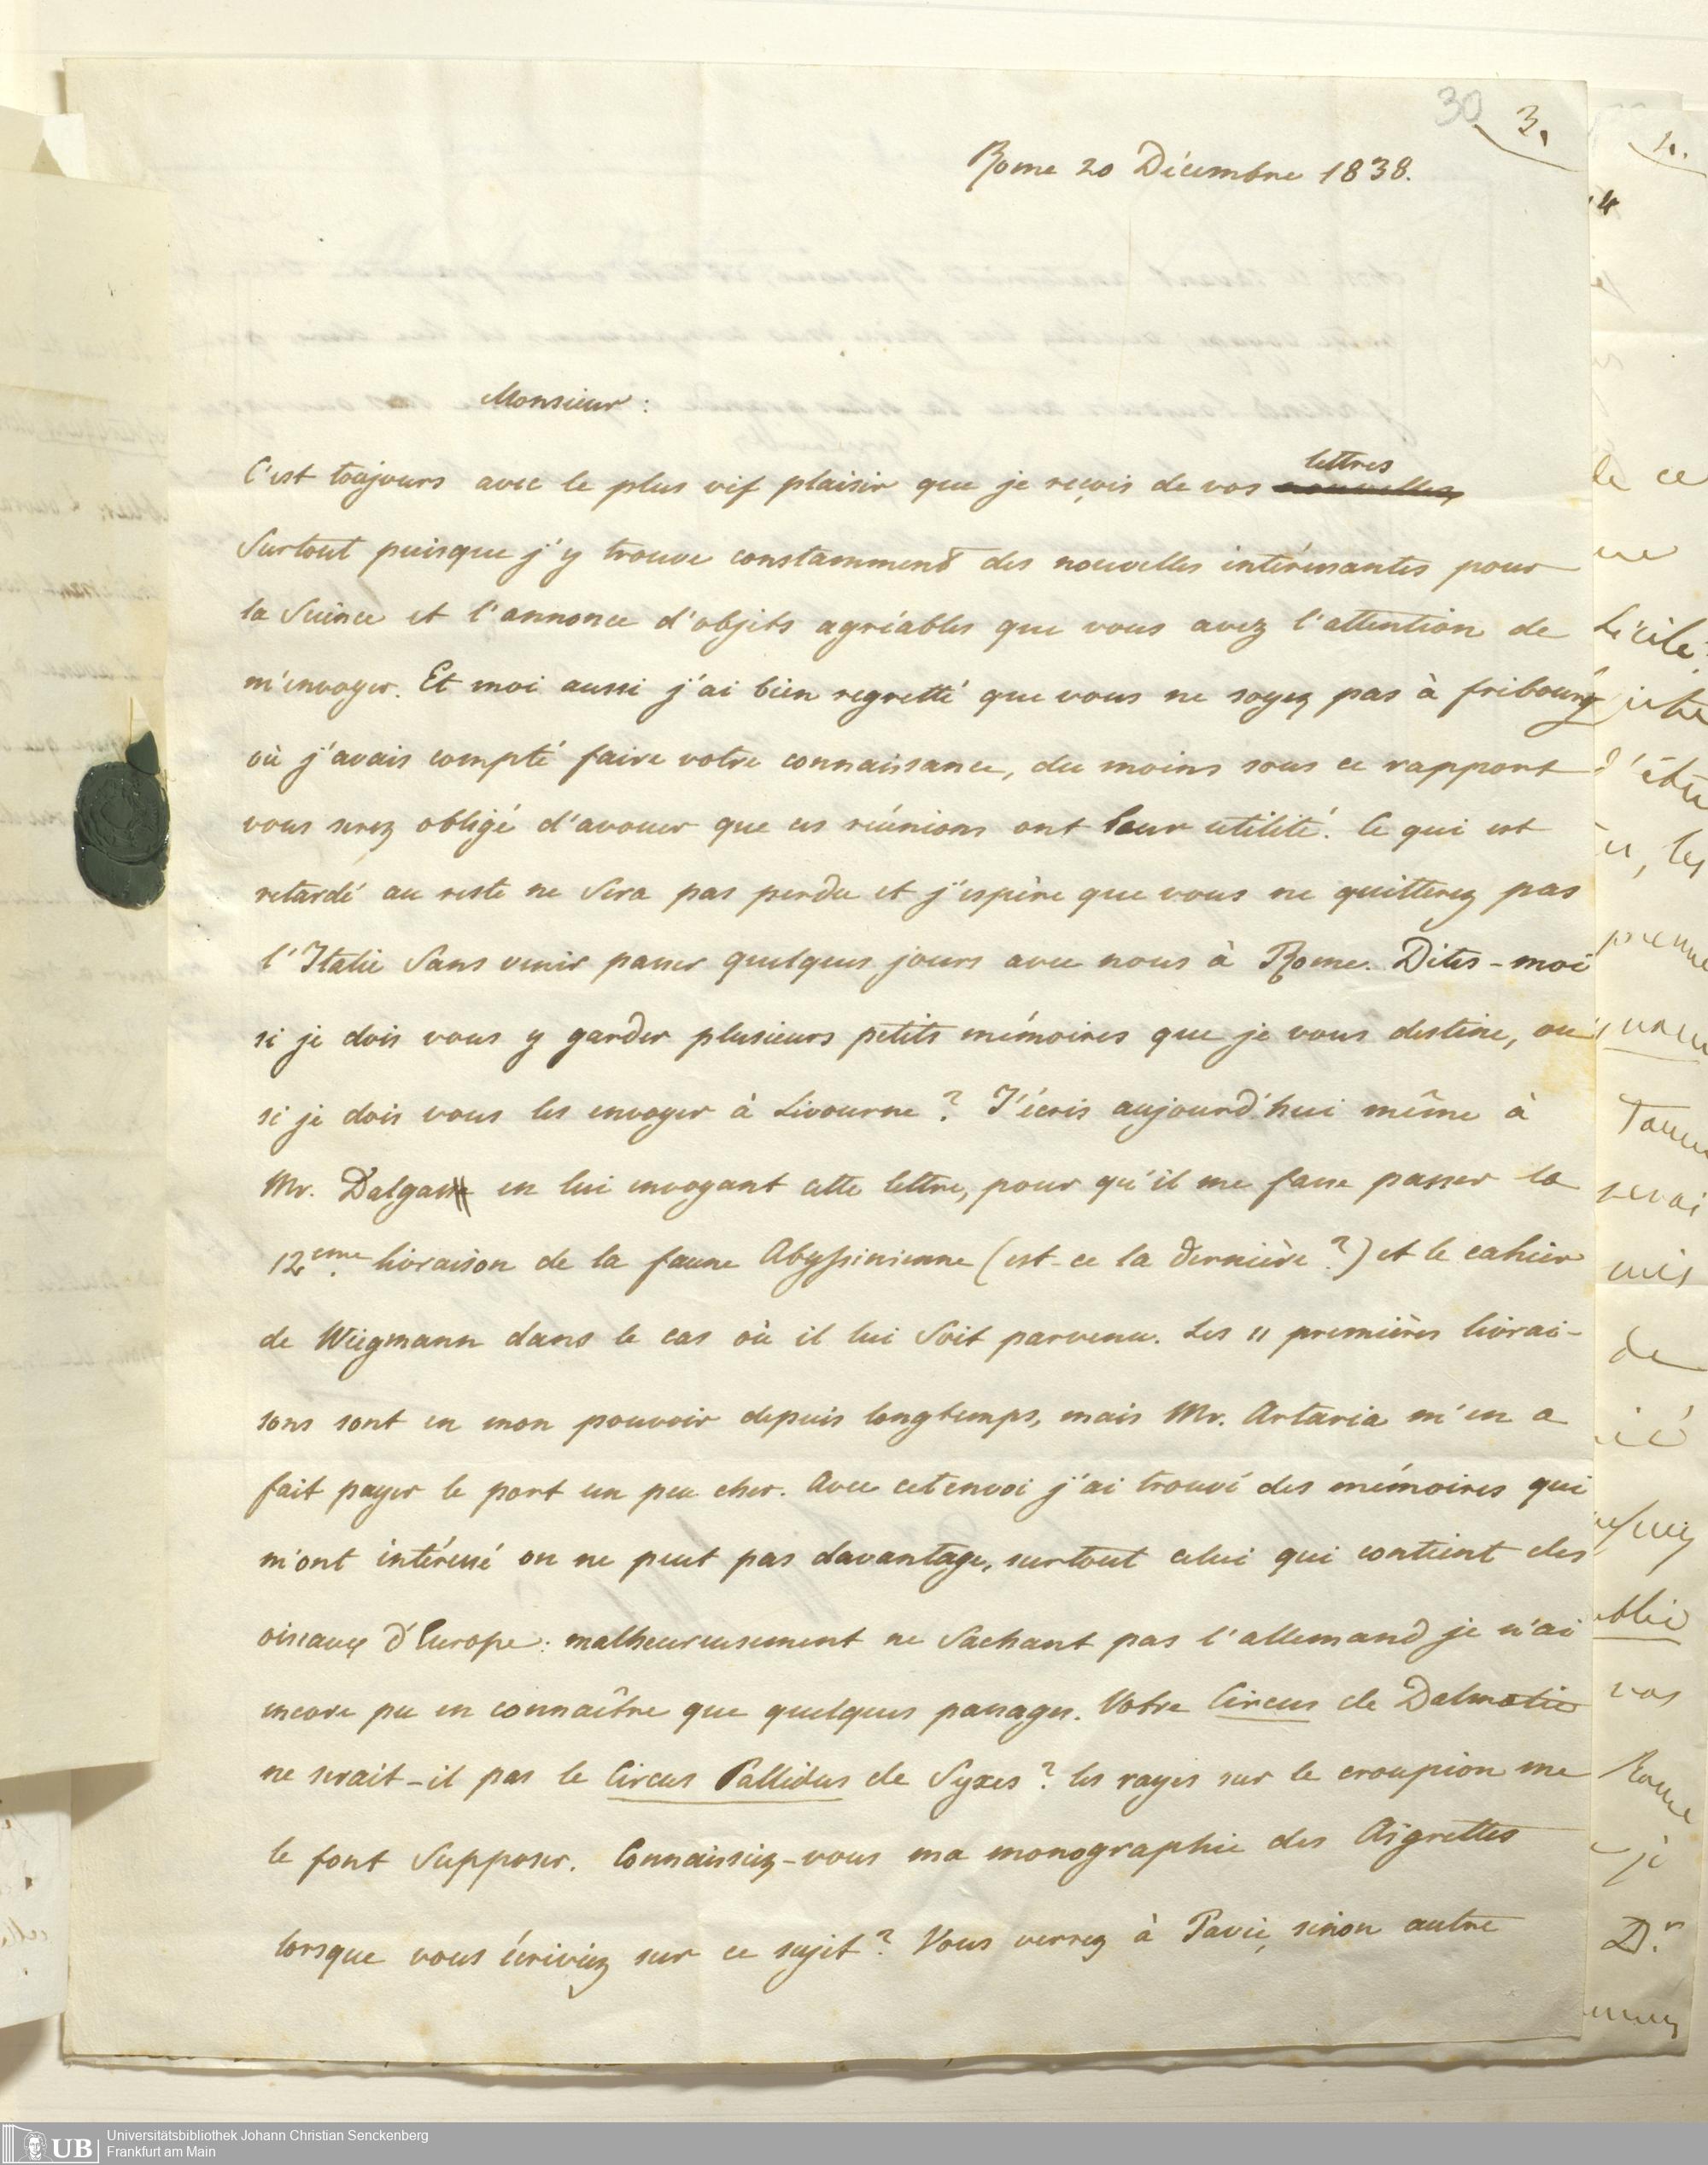 30 3.
Rome 20 Décembre 1838.
Monsieur:
C'est toujours avec le plus vif plaisir que je reçois de vos nouvelles lettres
surtout puisque j'y trouve constamment des nouvelles intéressantes pour
la Science et l'annonce d'objets agréables que vous avez l'attention de
m'envoyer. Et moi aussi j'ai bien regretté que vous ne soyez pas à fribourg
où j'avais compté faire votre connaissance, du moins sous ce rapport
vous serez obligé d'avouer que ces réunions ont leur utilité. Ce qui est
retardé au reste ne sera pas perdu et j'espère que vous ne quitterez pas
l'Italie sans venir passer quelques jours avec nous à Rome. Dites-moi
si je dois vous y garder plusieurs petits mémoires que je vous destine, ou
si je dois vous les envoyer à Livourne? J'écris aujourd'hui même à
Mr. Dalgas en lui envoyant cette lettre, pour qu'il me fasse passer la
12eme livraison de la faune Abyssinienne (est-ce la dernière?) et le cahier
de Wiegmann dans le cas où il lui soit parvenu. Les 11 premières livrai-
sons sont en mon pouvoir depuis longtemps, mais Mr. Artaria m'en a
fait payer le port un peu cher. Avec cet envoi j'ai trouvé des mémoires qui
m'ont intéressé on ne peut pas davantage, surtout celui qui contient des
oiseaux d'Europe: malheureusement ne sachant pas l'allemand je n'ai
encore pu en connaître que quelques passages. Votre Circus de Dalmatie
ne serait-il pas le Circus Pallidus de Syxes? les rayes sur le croupion me
le font supposer. Connaissiez-vous ma monographie des Aigrettes
lorsque vous écriviez sur ce sujet? Vous verrez à Pavie, sinon autre
UB Universitätsbibliothek Johann Christian Senckenberg
Frankfurt am Main